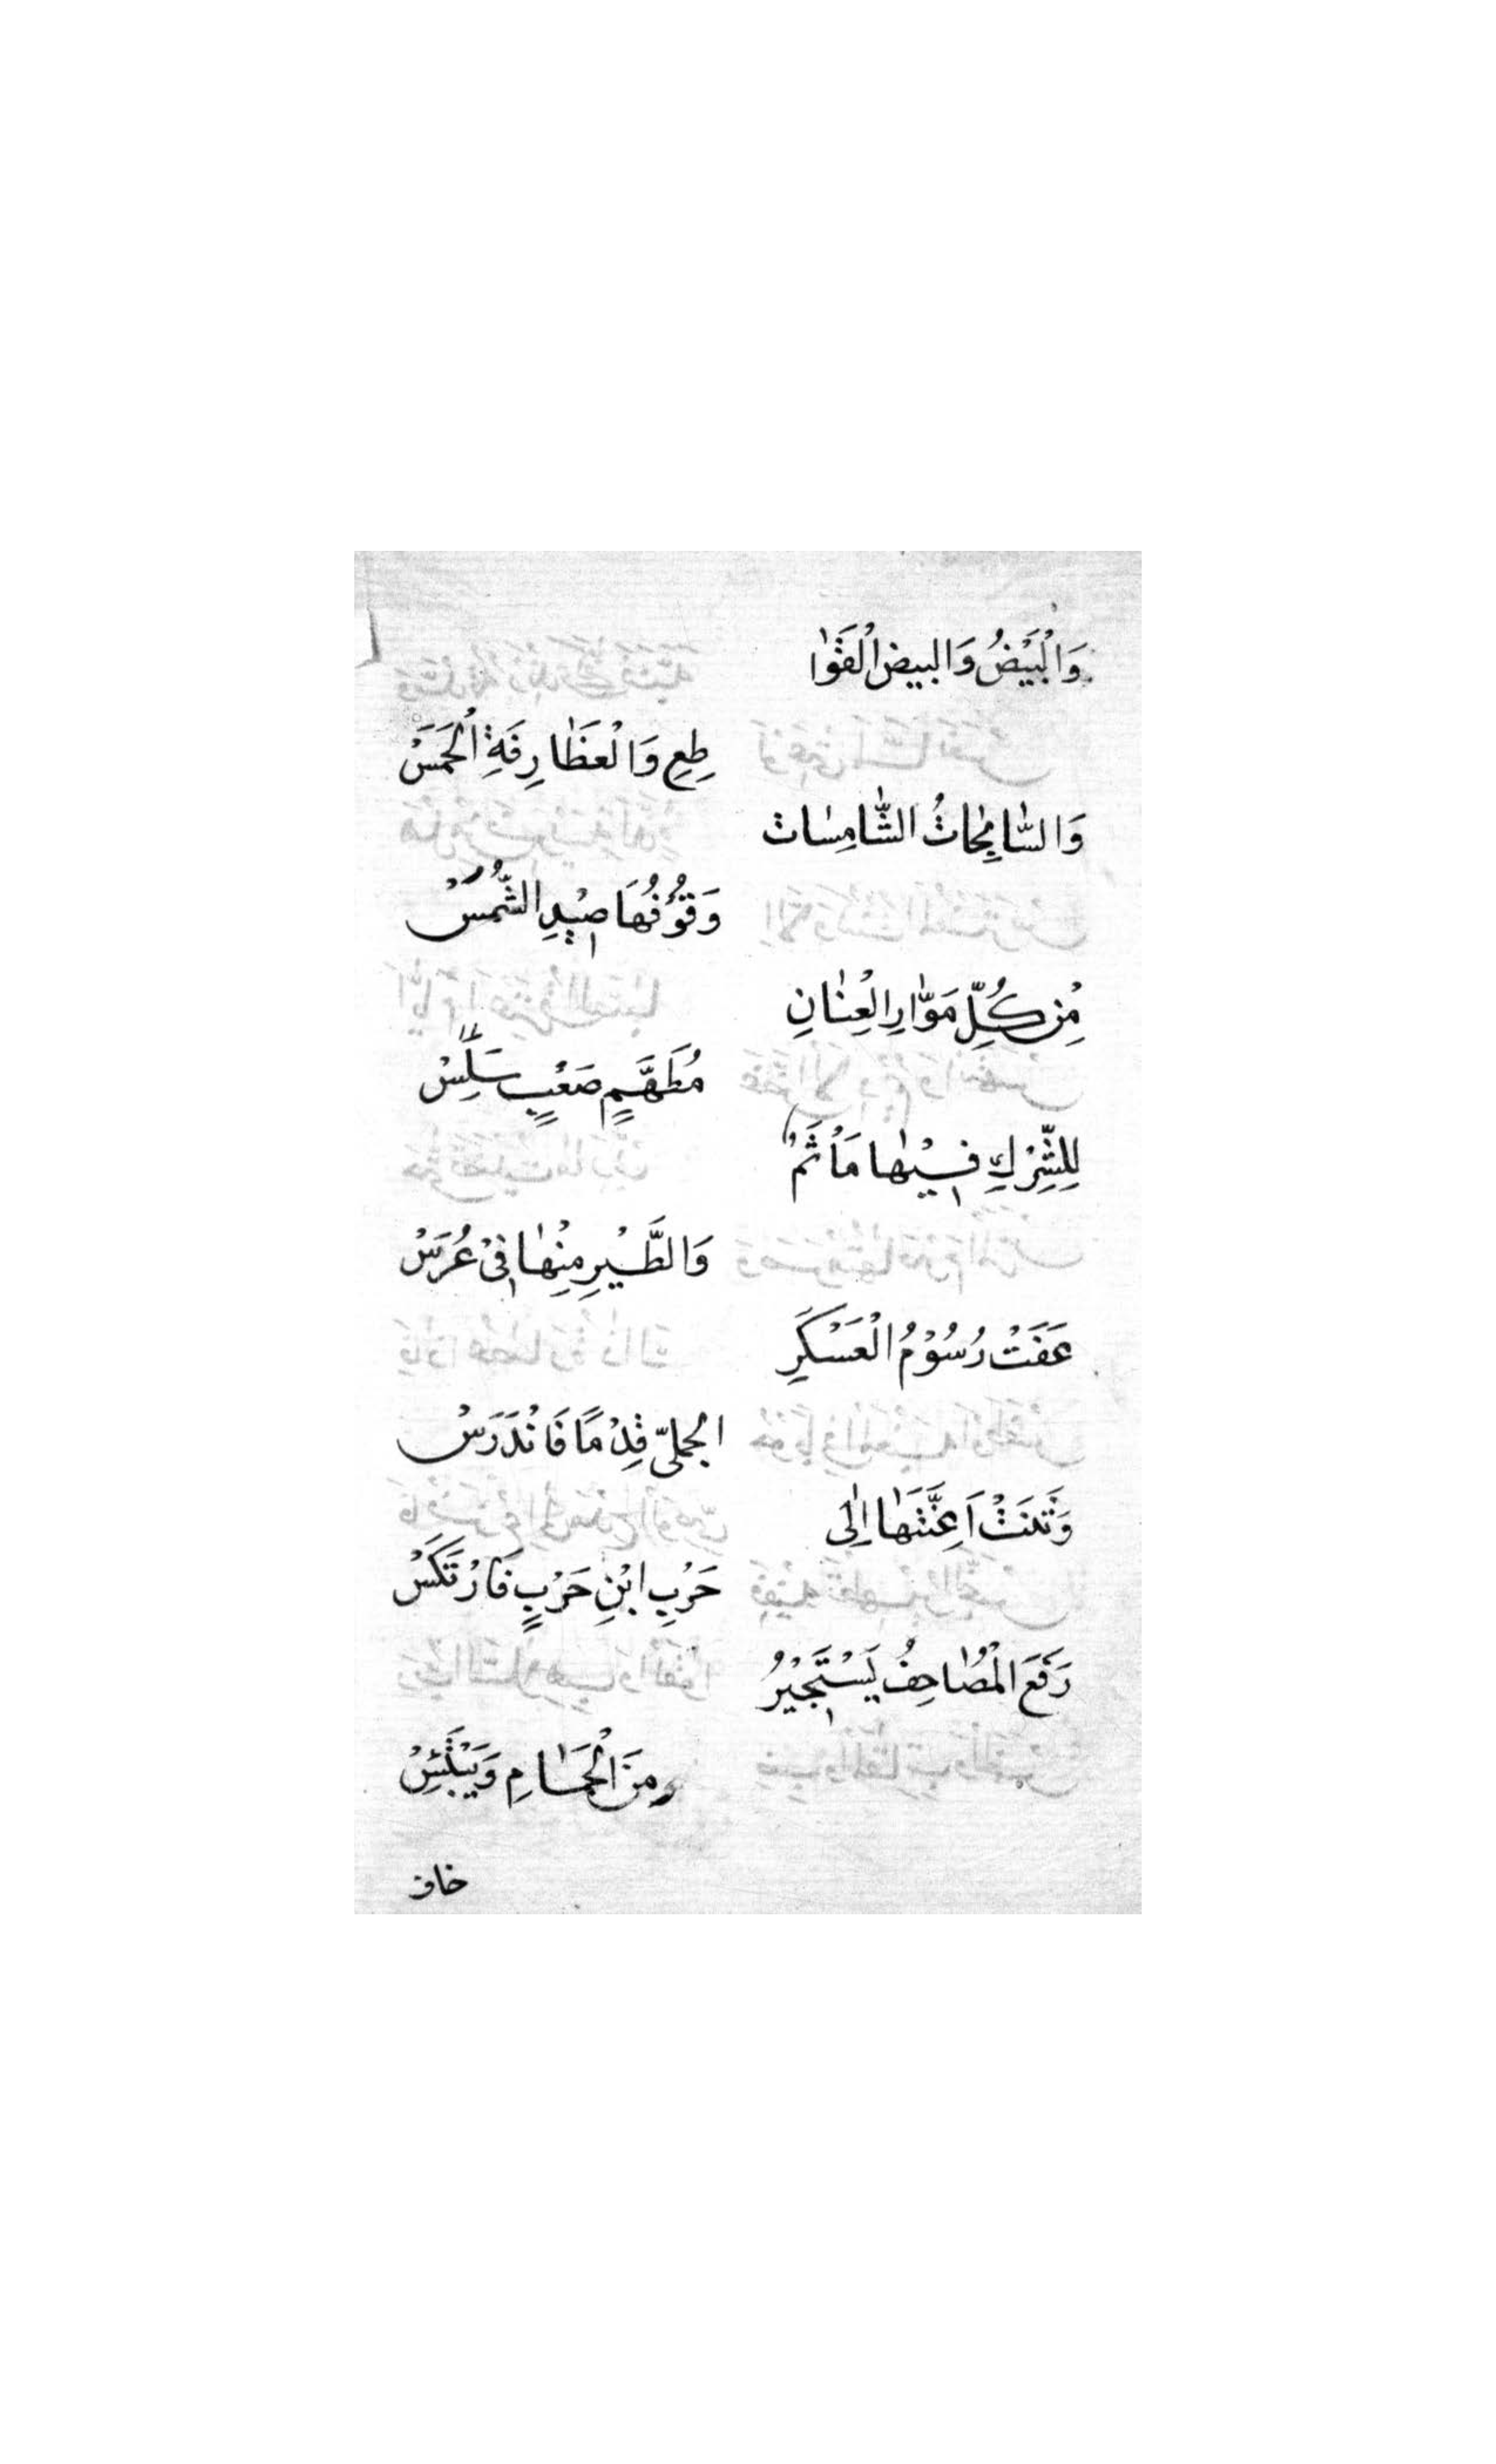 وَالْبَيْضُ وَالبيض الْقَوٰا
طِعِ وَالْغَطٰارِفَةِ الْحَمَسْ
وَالسّٰابِحٰاتُ الشّٰامِسٰات
وَقُوْفُهَا صِيْدِ الشُّمُسْ
مِنْ كُلِّ مَوّٰارِ الْعِنٰانِ
مُطَهَّمٍ صَعْبٍ سَلِسْ
لِلشِّرْكِ فِيْهٰا مَأْتَمٌ
وَالطَّيْرِ مِنْهٰا فِيْ عُرَسْ
عَفَتْ رُسُوْمُ الْعَسْكَرِ
الجملىّ قِدْمًا فَانْدَرَسْ
وَثَنَتْ اَعِنَّتَهٰا اِلٰى
حَرْبِ ابْنِ حَرْبٍ فَارْتَكَسْ
رَفَعَ الْمَصٰاحِفُ يَسْتَجِيْرُ
مِنَ الْحِمٰامِ وَيَبْتَئِسْ
خاف